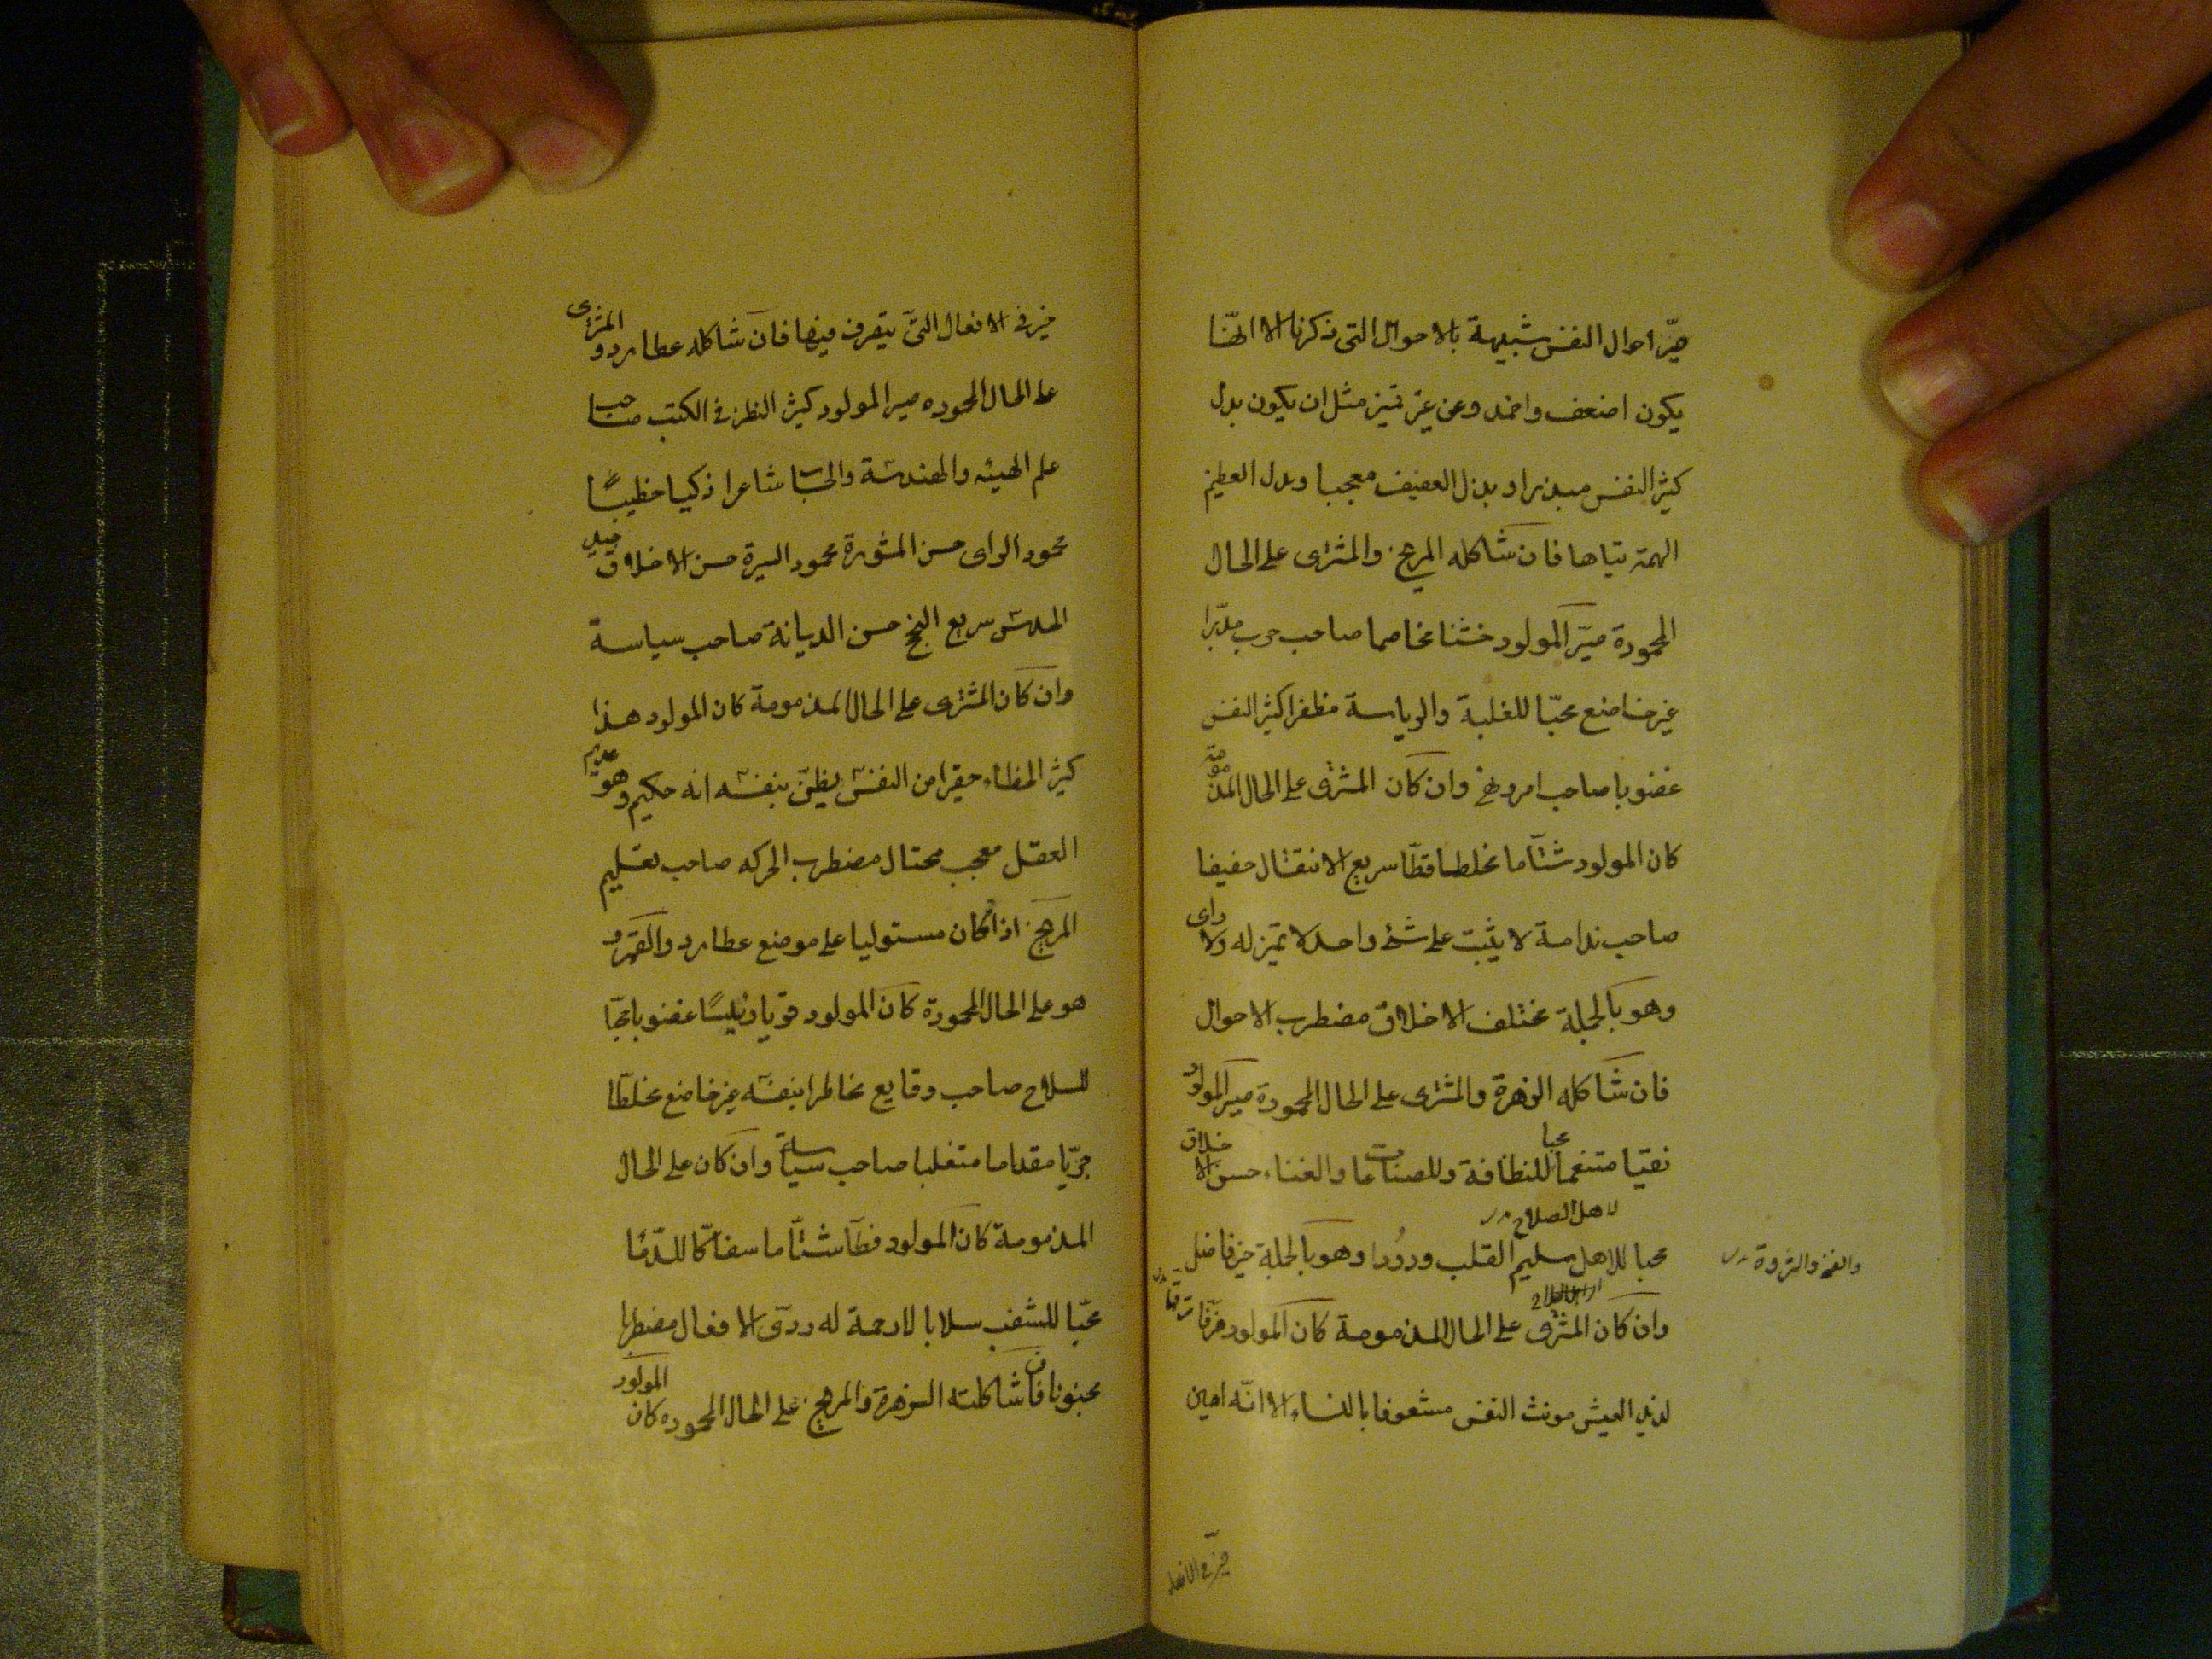 صيّر احوال النفس شبيهة بالاحوال التى ذكرنا الا انّها
يكون اضعف واخمد وعن غير تميز مثل ان يكون بدل
كثير النفس مبذرا و بدل العفيف معجبا وبدل العظيم
الهمة تياها فان شاكله المريخ والمشترى على الحال
المحمودة صيّر المولود خشنا مخاصما صاحب حرب مدبّرا
غير خاضع محبّا للغلبة والرياسة مظفرا كثير النفس
غضوبا صاحب امر ونهى وان كان المشترى على الحال المذمومة
كان المولود شتّاما مخلطا فظّا سريع الانتقال خفيفا
صاحب ندامة لا يثبت على شئ واحد لا تميز له ولا راى
وهو بالجملة مختلف الاخلاق مضطرب الاحوال
فان شاكله الزهرة والمشترى على الحال المحمودة صير المولود
نقيا متنعما محبا للنظافة وللصناعات والغناء حسن الاخلاق
لاهل الصلاح
محبا للاهل سليم القلب ودودا وهو بالجملة خير فاضل
والفخ والثروة
وان كان المشترى على الحال المذمومة كان المولود
لذيذ العيش مونث النفس مشعوفا بالنساء الا انّه امين
خير فى الافعال
خير فى الافعال التى يتصرف فيها فان شاكله عطارد و المشترى
على الحال المحموده صير المولود كثير النظر فى الكتب صاحب
علم الهيئه والهندسة والحساب شاعرا ذكيا خطيبًا
محمود الراى حسن المشورة محمود السيرة حسن الاخلاق جيد
الحدس سريع النجح حسن الديانة صاحب سياسة
وان كان المشترى على الحال المذمومة كان المولود هذا
كثير الخطاء حقيرا من النفس يظنّ بنفسه انه حكيم وهو عديم
العقل معجب محتال مضطرب الحركه صاحب تعليم
المريخ اذا كان مستوليا على موضع عطارد والقمر و
هو على الحال المحمودة كان المولود قويا رئيسًا غضوبا محبّا
للسلاح صاحب وقايع مخاطرا بنفسه غير خاضع مخلطا
جريّا مقداما متغلبا صاحب سياسة وان كان على الحال
المذمومة كان المولود فظّا شتّاما سفاكّا للدّما
محبّا للشغب سلابا لا رحمة له ردىّ الافعال مضطربا
مجنونا فان شاكلته الزهرة والمريخ على الحال المحموده كان المولود